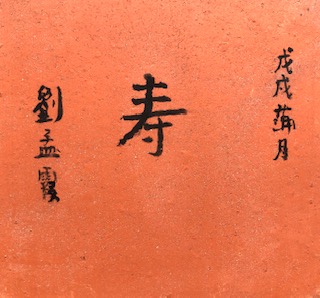 戊戌蒲月
寿
劉孟霞